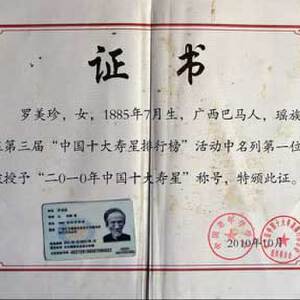 证书
罗美珍，女，1885年7月生，广西巴马人，瑶族
第三届“中国十大寿星排行榜”活动中名列第一位
授予“二〇一〇年中国十大寿星”称号，特颁此证。
2010年10月